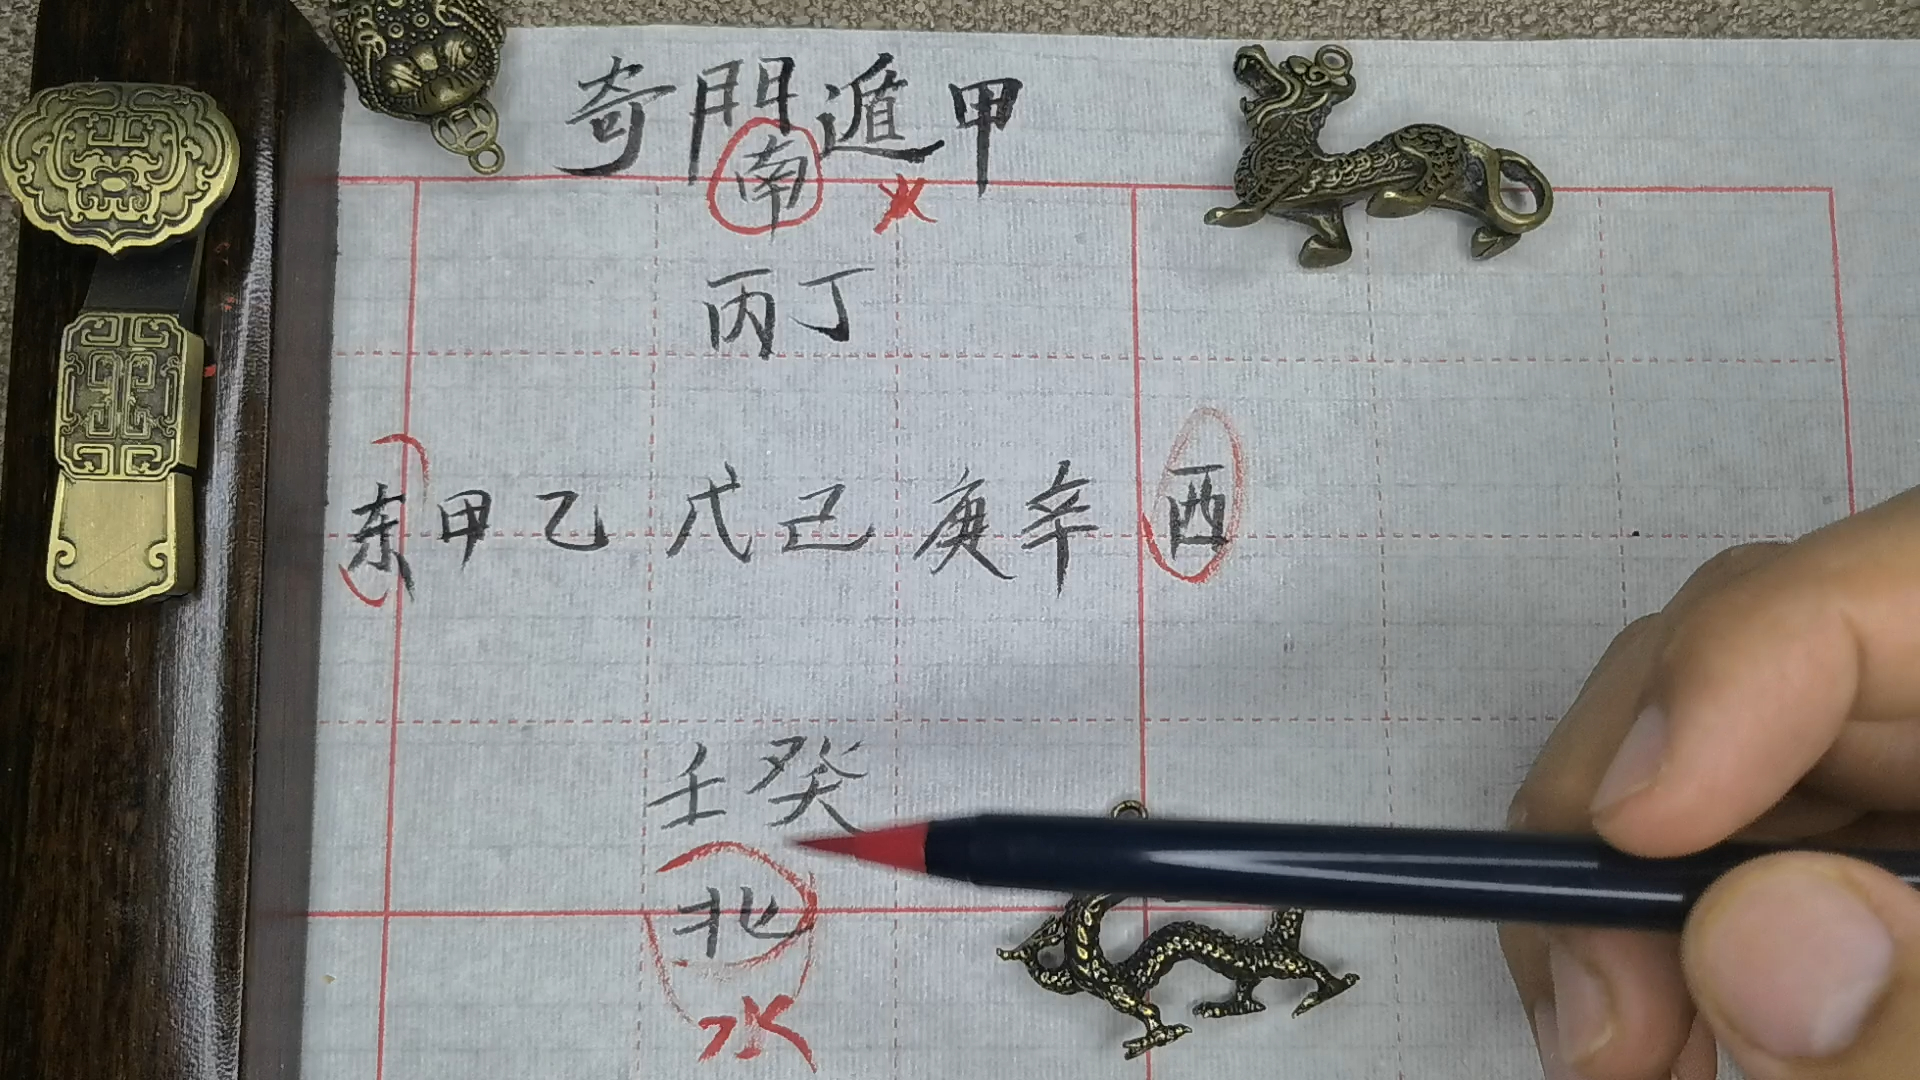 奇門遁甲
南 火
丙丁
东甲乙 戊己 庚辛 西
壬癸
北
水